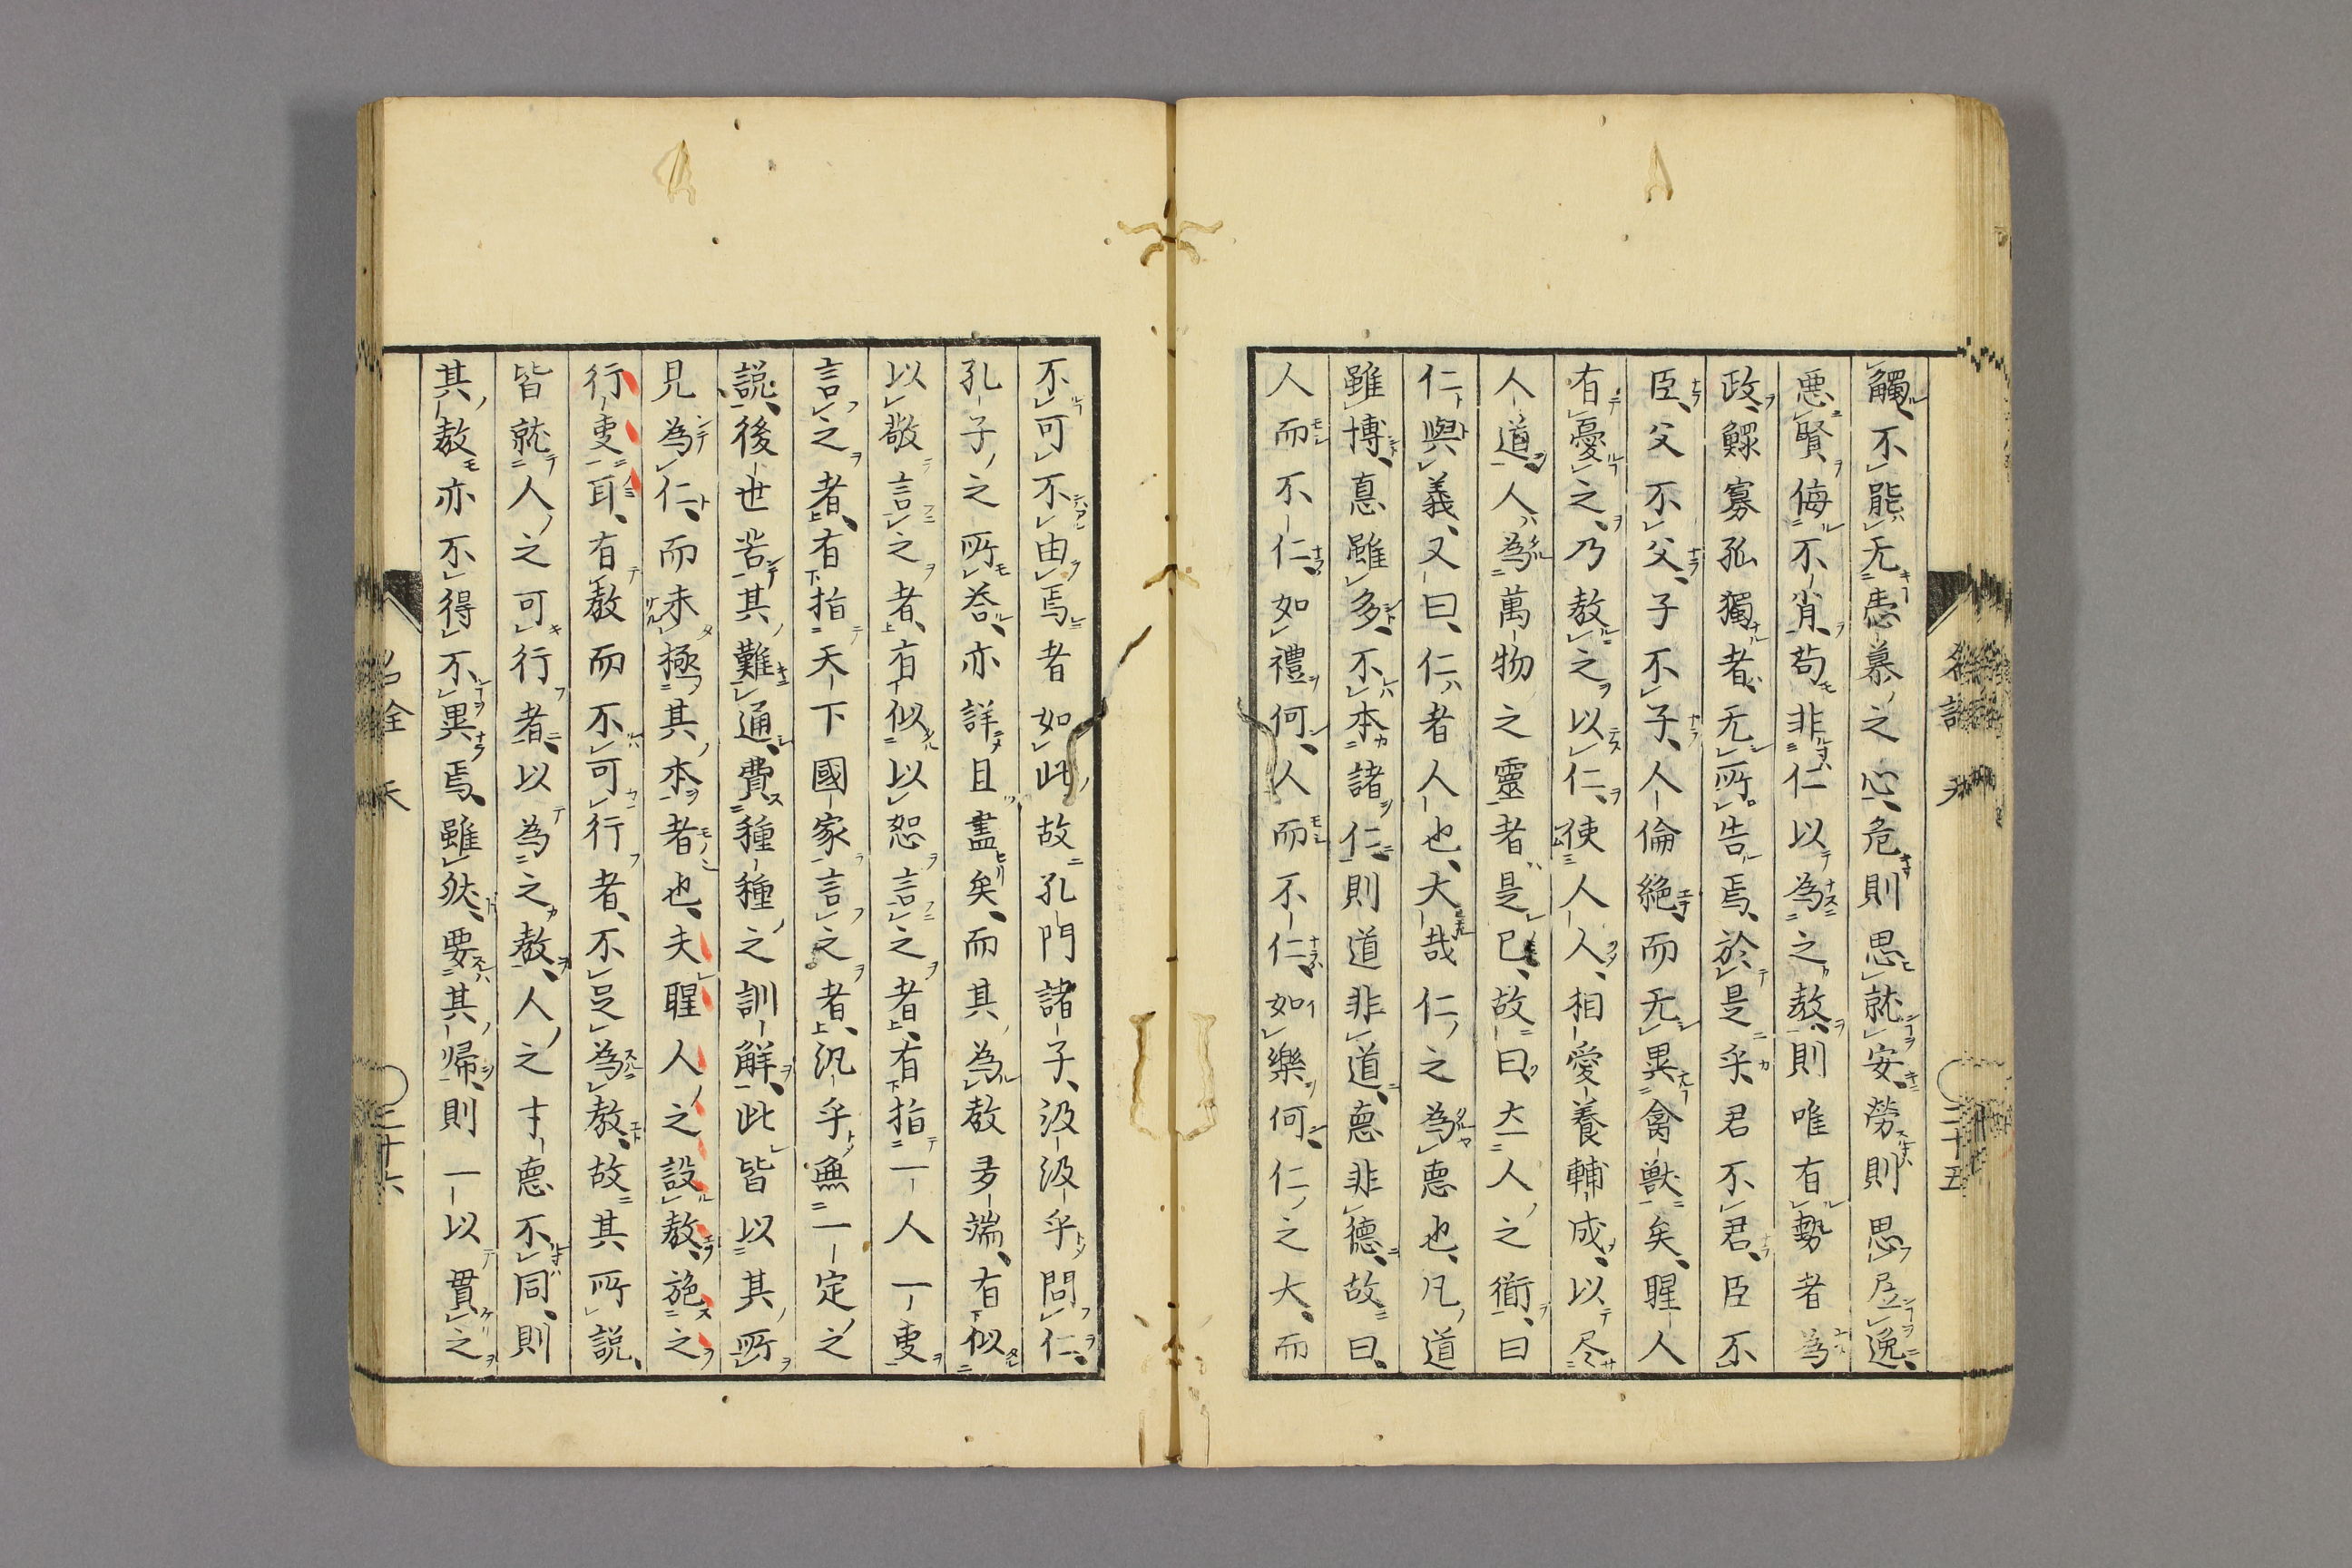 觸不能无恚慕之心危則思就安勞則思尽逸
悪賢侮不肖苟非仁以為之敎則唯有勢者為
政鰥寡孤獨者无所告焉於是乎君不君臣不
臣父不父子不子人倫絶而无異禽獣矣聖人
有憂之乃敎之以仁使人人相愛養輔成以尽
人道人為萬物之靈者是已故曰大人之衜曰
仁與義又曰仁者人也大哉仁之為悳也凡道
雖博悳雖多不本諸仁則道非道悳非德故曰
人而不仁如禮何人而不仁如樂何仁之大而
不可不由焉者如此故孔門諸子汲汲乎問仁
孔子之所答亦詳且盡矣而其為敎多端有似
以敬言之者有似以恕言之者有指一人一事
言之者有指天下國家言之者汎乎無一定之
説後世苦其難通費種種之訓解此皆以其所
見為仁而未極其本者也夫聖人之設敎施之
行事耳有敎而不可行者不足為敎故其所説
皆就人之可行者以為之敎人之才悳不同則
其敎亦不得不異焉雖然要其帰則一以貫之
二十五
二十六